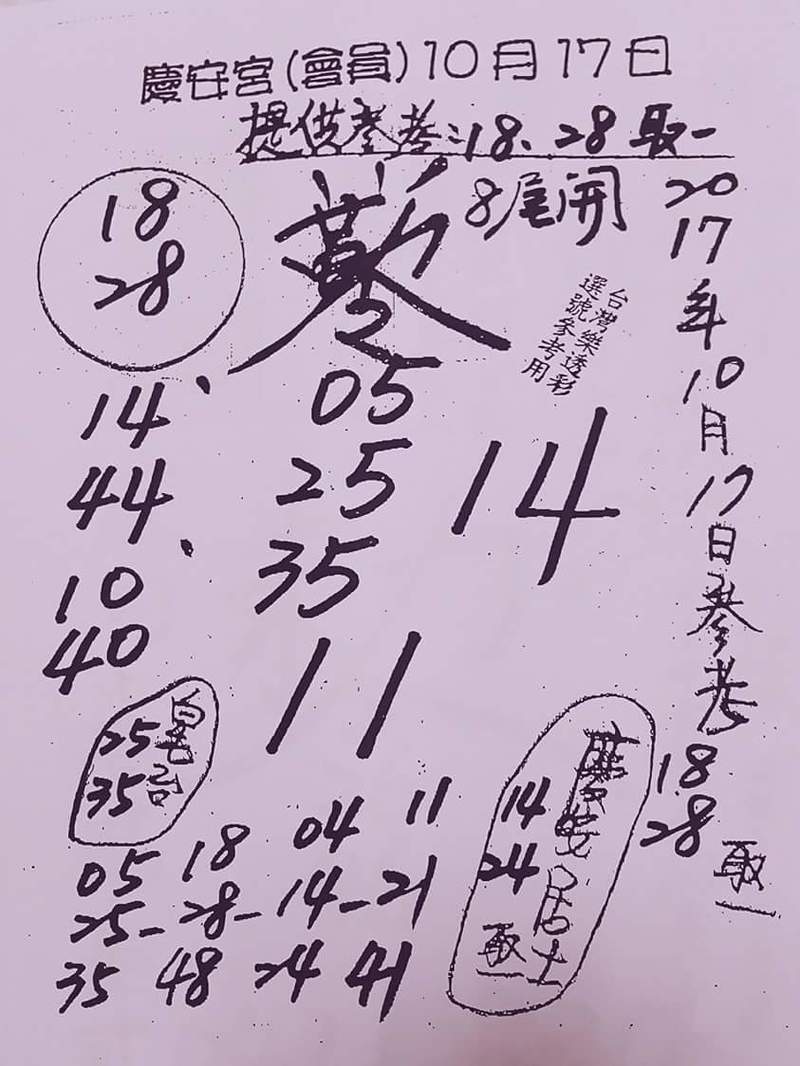 慶安宮(會員)10月17日
提供參考:18、28取一
18
28
8尾開
2017年10月17日參考
18
28
取一
台灣樂透彩
選號參考用
14、
44
10、
40
05
25
35
14
11
25
35
慶安居士
14
24
取一
05 18 04 11
25-28-14-21
35 48 24 41